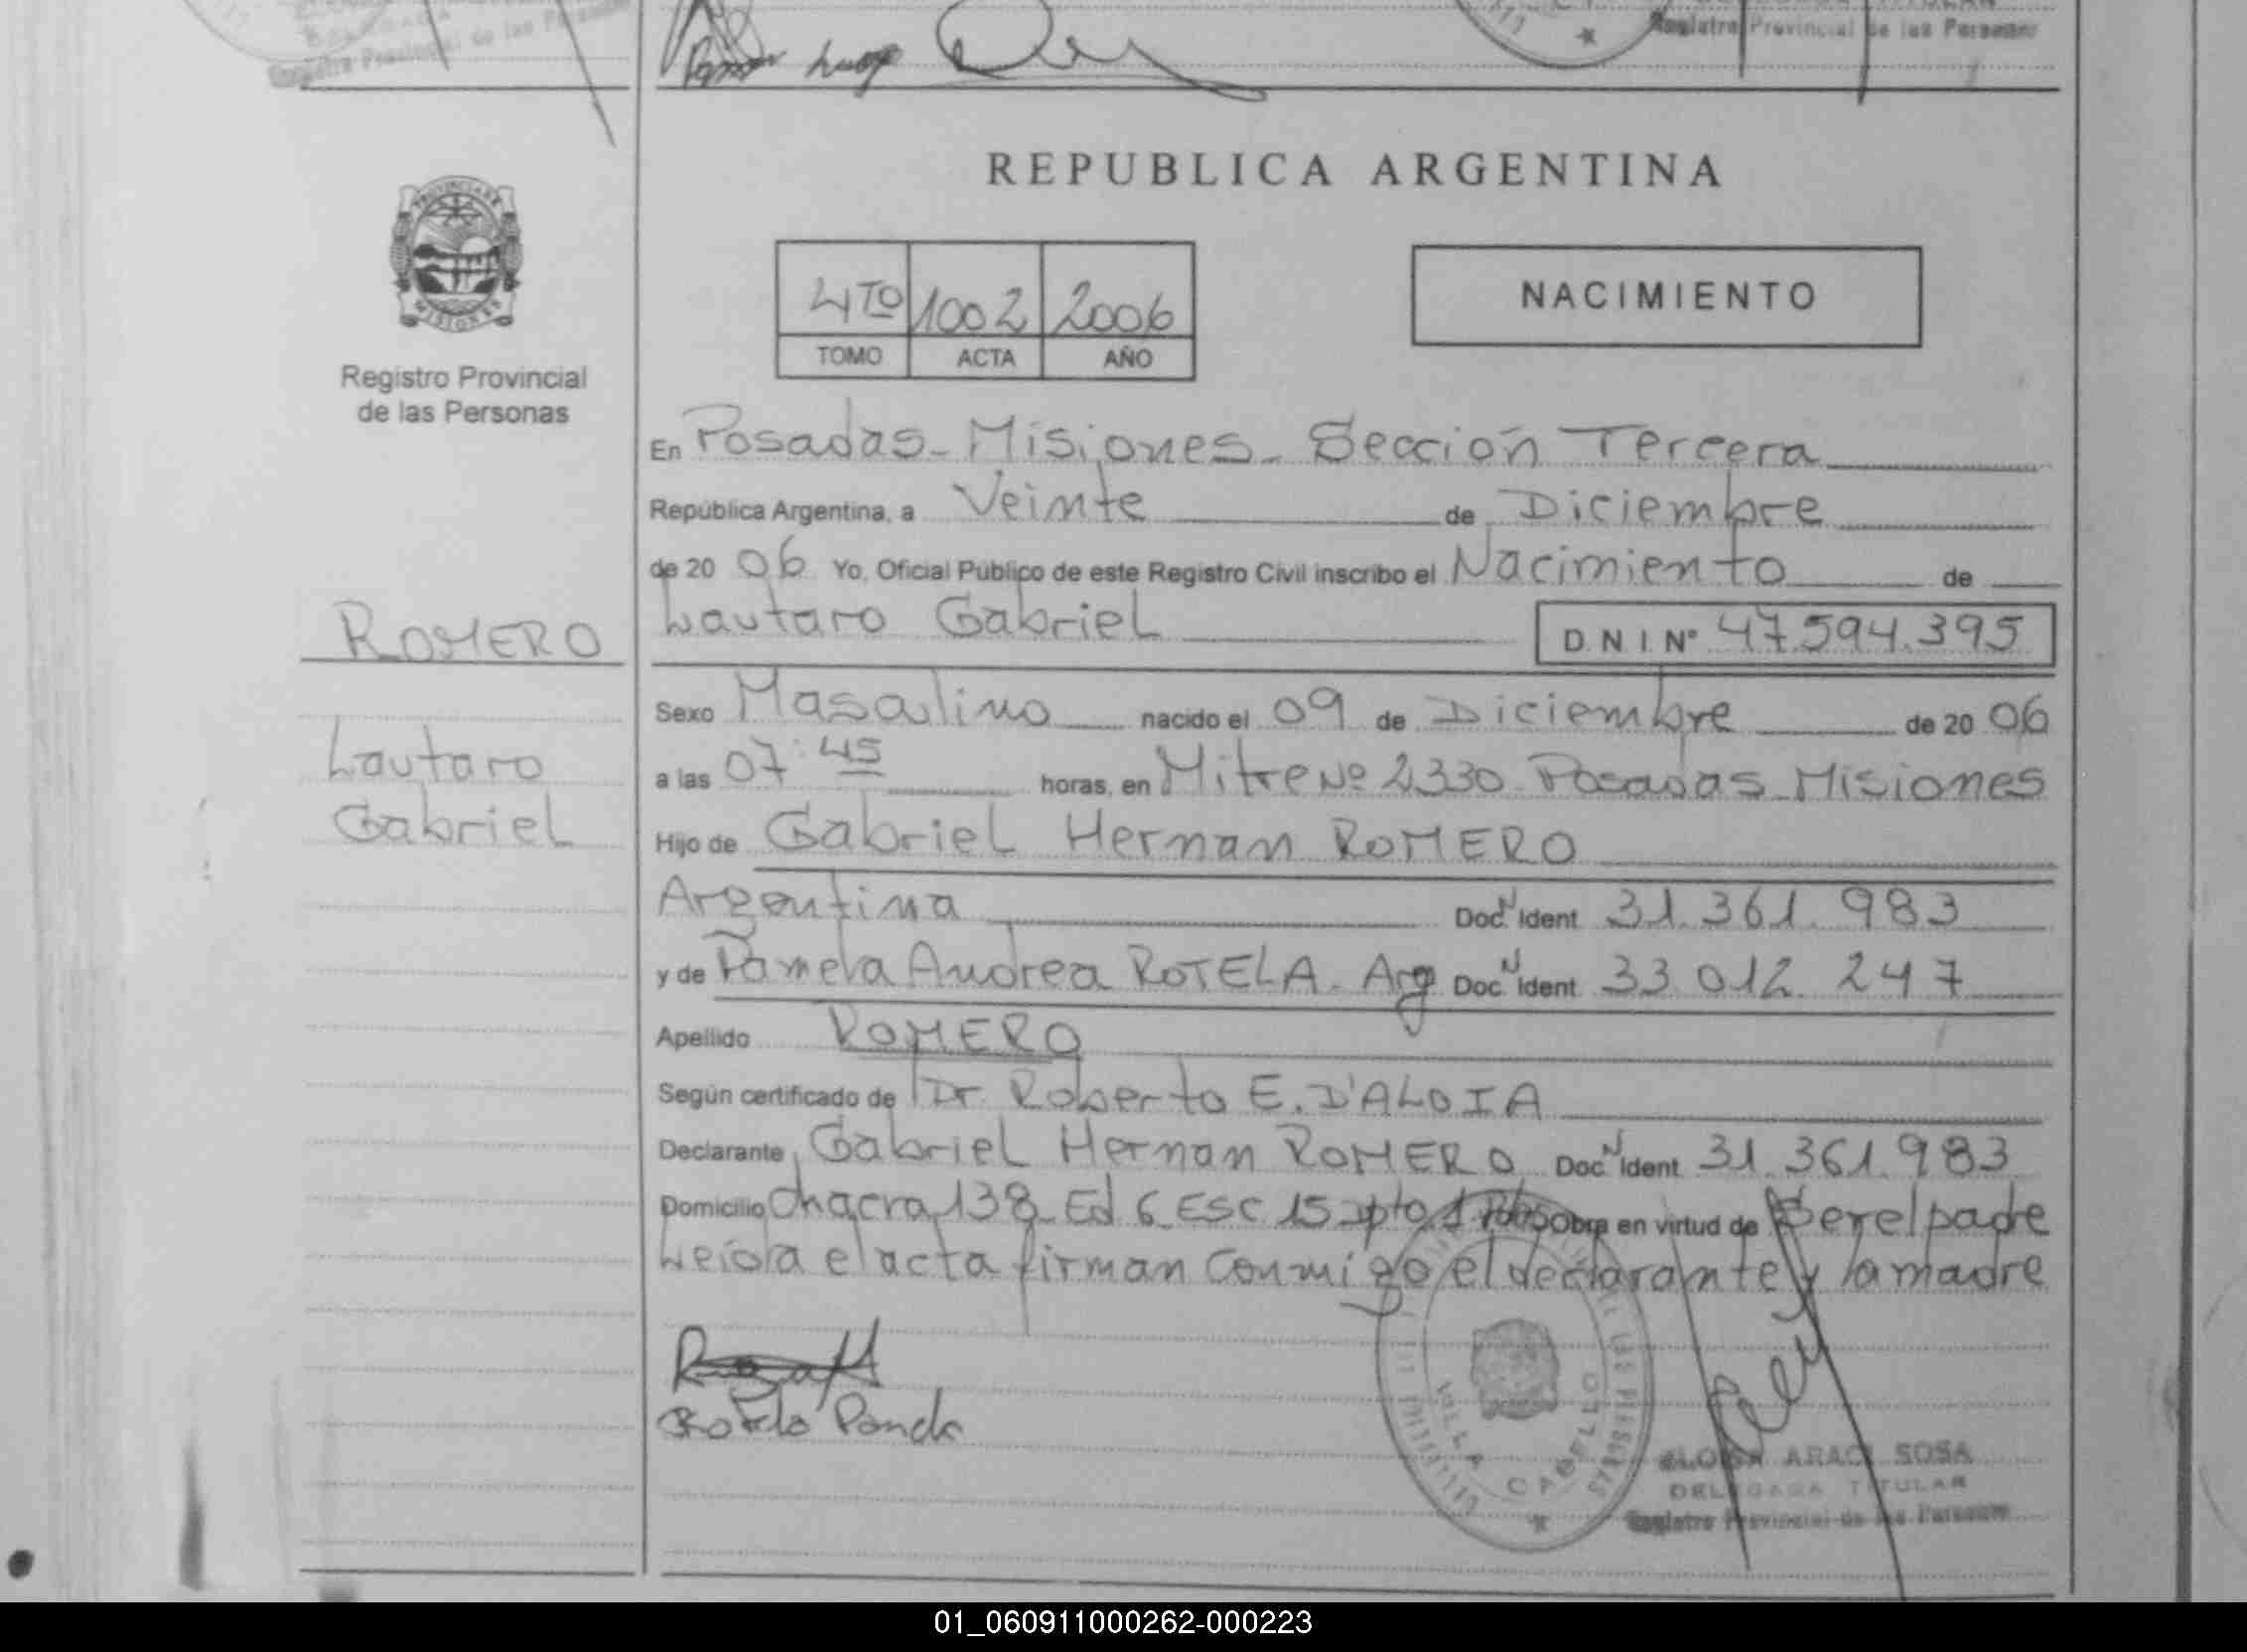 Registro Provincial de las Personas
Registro Provincial de las Personas
REPUBLICA ARGENTINA
PROVINCIA DE
MISIONES
Registro Provincial
de las Personas
4TO 1002 2006
TOMO ACTA AÑO
NACIMIENTO
En Posadas - Misiones - Sección Tercera
República Argentina, a Veinte de Diciembre
de 20 06 Yo, Oficial Público de este Registro Civil inscribo el Nacimiento de
ROMERO
Lautaro Gabriel D.N.I. Nº 47.594.395
Sexo Masculino nacido el 09 de Diciembre de 20 06
Lautaro
a las 07:45 horas, en Mitre Nº 2330 - Posadas - Misiones
Gabriel
Hijo de Gabriel Hernan ROMERO
Argentina Doc. Ident 31.361.983
y de Pamela Andrea ROTELA - Arg Doc. Ident 33.012.247
Apellido ROMERO
Según certificado de Dr. Roberto E. D'ALOIA
Declarante Gabriel Hernan ROMERO Doc. Ident 31.361.983
Domicilio Chacra 138 - Ed 6 Esc 15 Dpto 1 Pdas Obra en virtud de Ser el padre
Leída el acta firman conmigo el declarante y la madre
Rotela
VILLA CABELLO
ARACI SOSA
DELEGADA TITULAR
Registro Provincial de las Personas
01_060911000262-000223